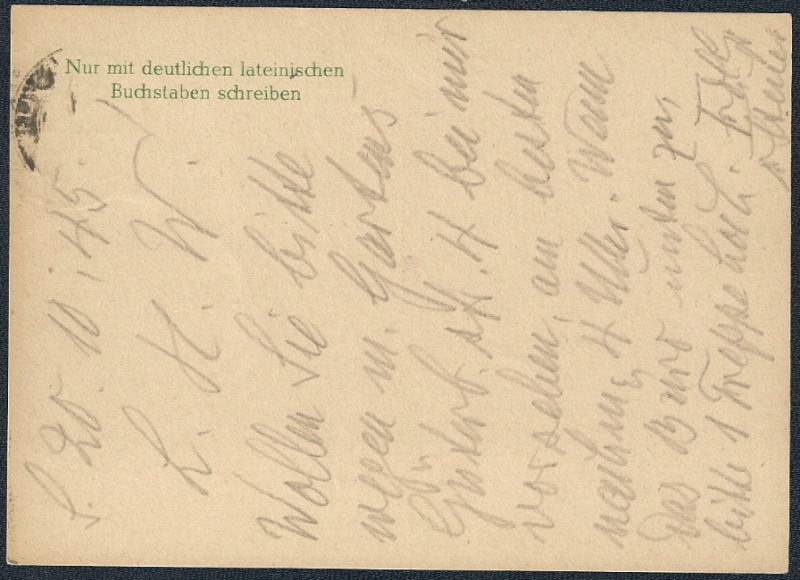 Nur mit deutlichen lateinischen
Buchstaben schreiben
S. 20. 10. 45.
L. H. W.
Wollen Sie bitte
wegen m. Gartens
4 bei mir
vorsehen, am besten
nachm. 4 Uhr. Wenn
das Büro unten zu,
bitte 1 Treppe hoch.